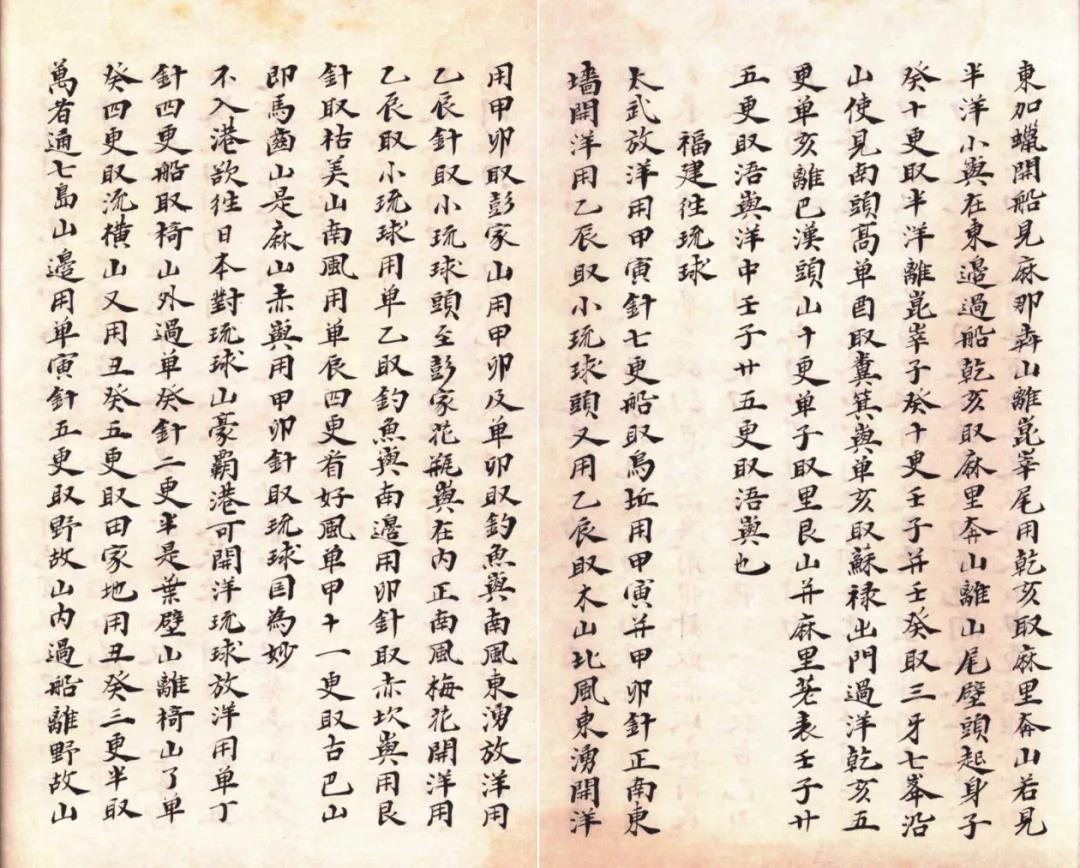 東加蠟開船見麻那犇山離崑崙尾用乾亥取麻里奔山若見
半洋小與在東邊過船乾亥取麻里奔山離山尾壁頭起身子
癸十更取半洋離崑崙子癸十更壬子并壬癸取三牙七峯沿
山使見南頭高单酉取糞箕與单亥取蘇禄出門過洋乾亥五
更单亥離巴漢頭山十更单子取里艮山并麻里荖表壬子廿
五更取浯與洋中壬子廿五更取浯與也
福建徃琉球
太武放洋用甲寅針七更船取烏坵用甲寅并甲卯針正南東
墻開洋用乙辰取小琉球頭又用乙辰取木山北風東湧開洋
用甲卯取彭家山用甲卯及单卯取釣魚與南風東湧放洋用
乙辰針取小琉球頭至彭家花瓶與在内正南風梅花開洋用
乙辰取小琉球用单乙取釣魚與南邊用卯針取赤坎與用艮
針取枯美山南風用单辰四更看好風单甲十一更取古巴山
即馬齒山是麻山赤與用甲卯針取琉球囯為妙
不入港欲徃日本對琉球山豪霸港可開洋琉球放洋用单丁
針四更船取椅山外過单癸針二更半是葉壁山離椅山了单
癸四更取流橫山又用丑癸五更取田家地用丑癸三更半取
萬者通七島山邊用单寅針五更取野故山内過船離野故山